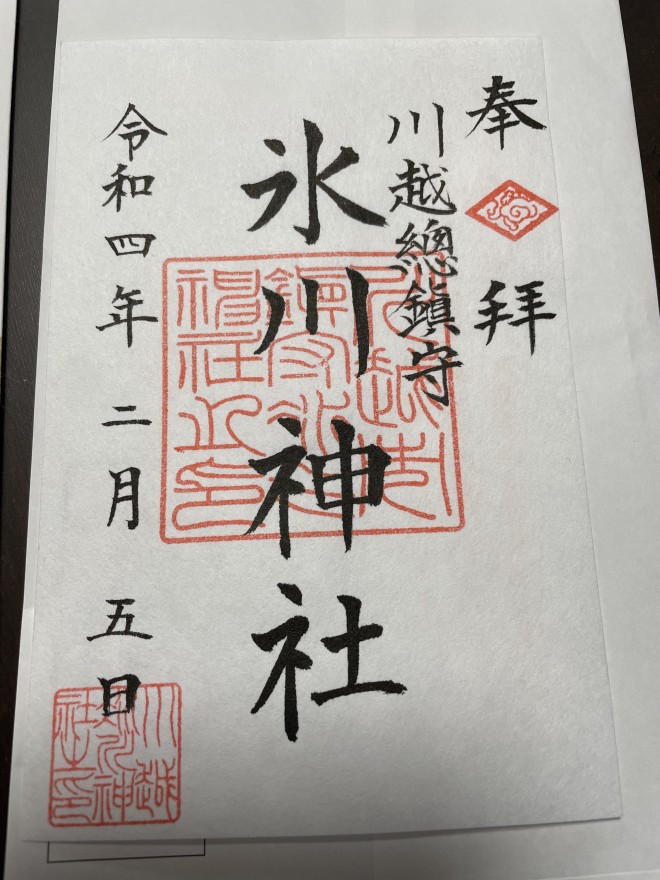 奉拝
川越總鎮守
氷川神社
令和四年二月五日
川越
氷川神
社之印